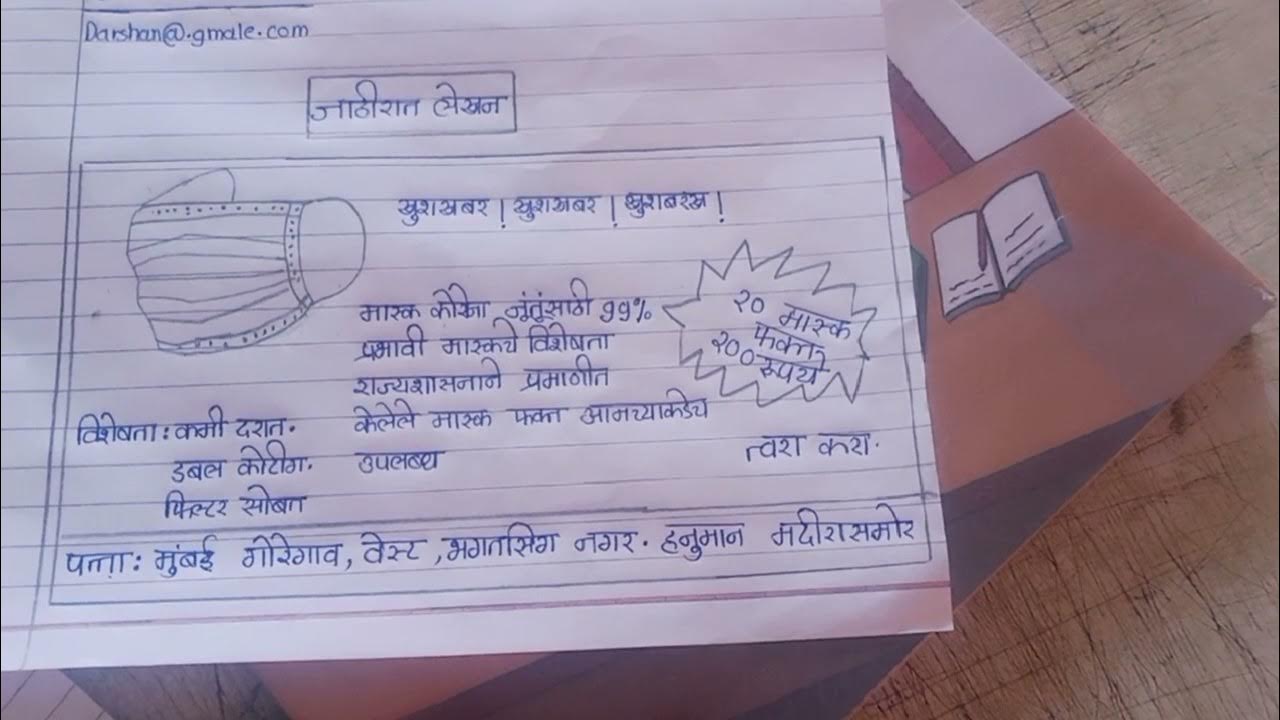 Darshan@.gmale.com
जाहीरात लेखन
खुशखबर! खुशखबर! खुशबरख!
मास्क कोरोना जंतुंसाठी 99%
प्रभावी मास्कचे विशेषता
राज्यशासनाने प्रमाणीत
केलेले मास्क फक्त आमच्याकडेच
उपलब्ध
१० मास्क
फक्त
२००
रुपये
विशेषता: कमी दरात.
डबल कोटींग.
फिल्टर सोबत
त्वरा करा.
पत्ता: मुंबई गोरेगाव, वेस्ट, भगतसिंग नगर. हनुमान मदीरासमोर